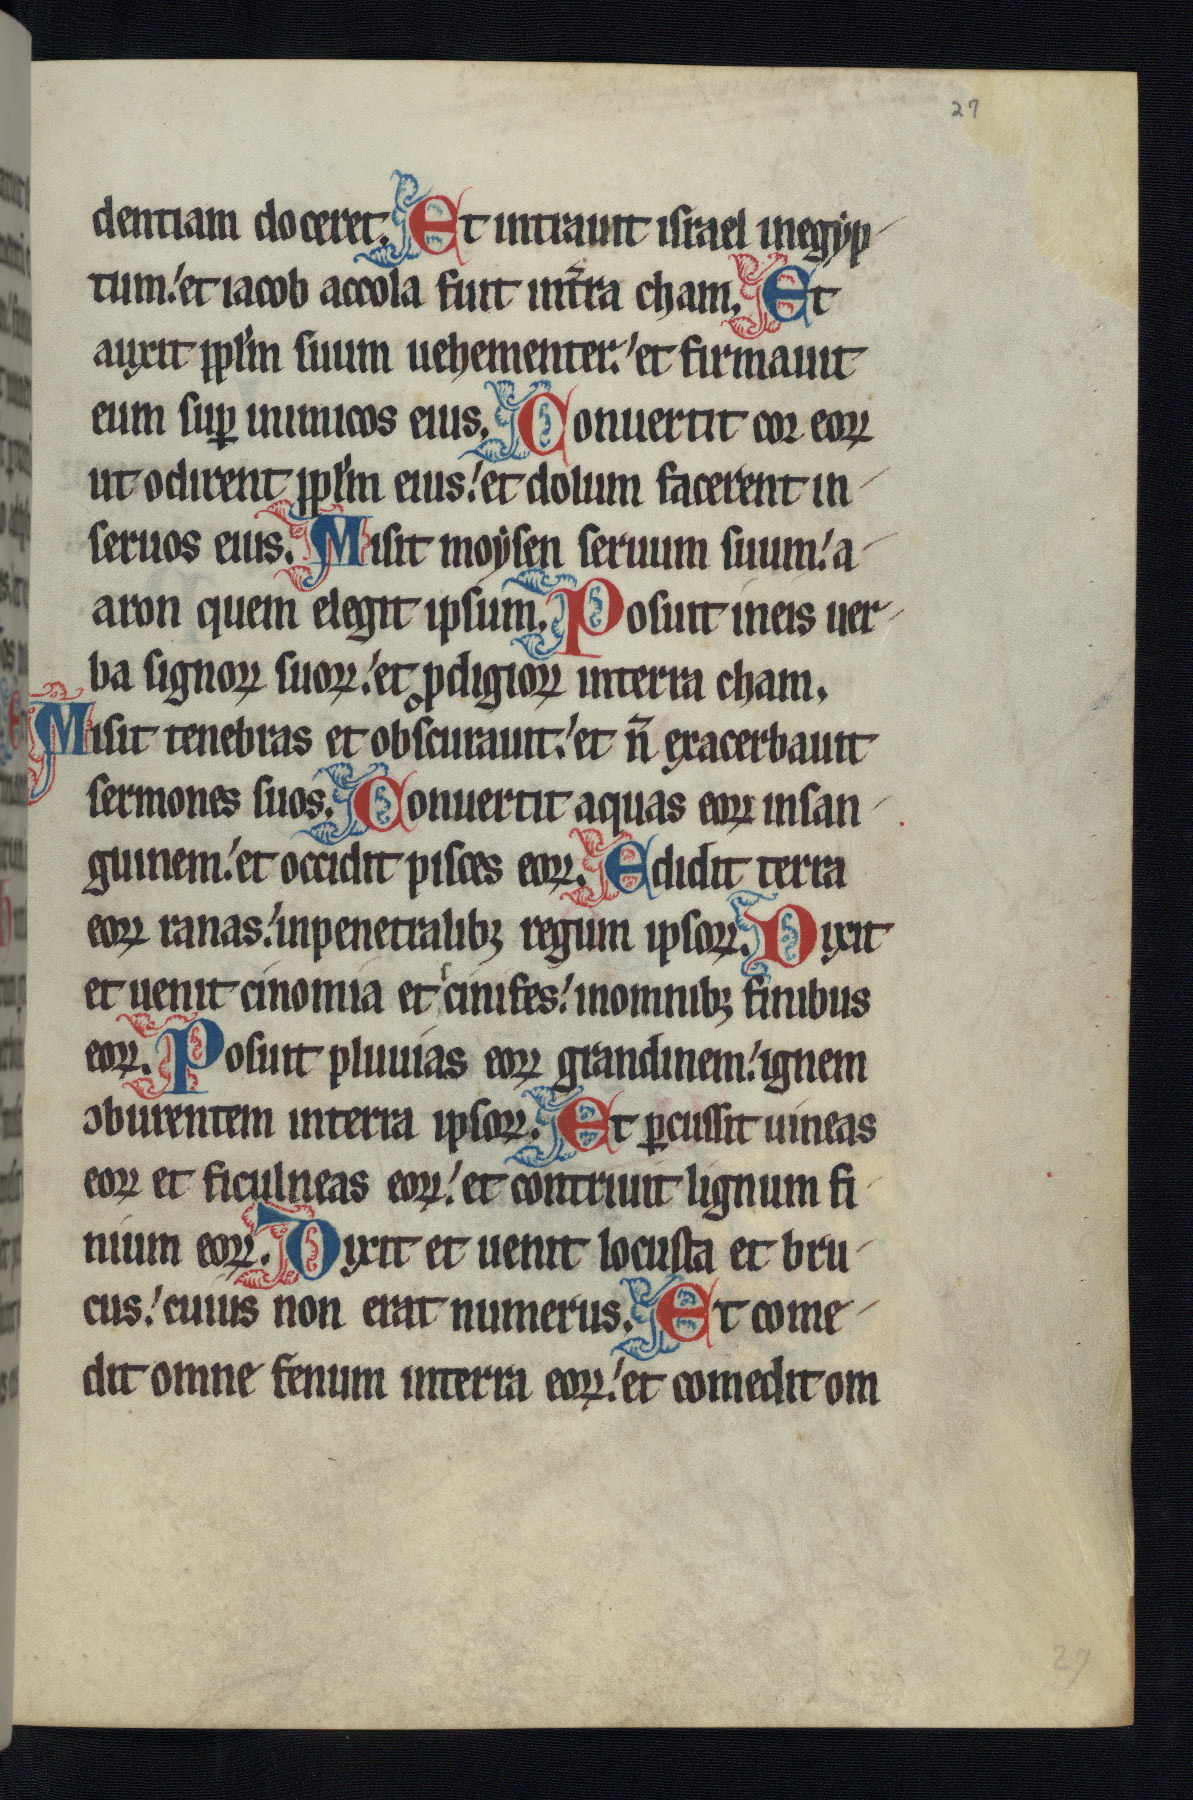 27
dentiam doceret. Et intrauit israel inegyp-
tum: et iacob accola fuit int̃ra cham. Et
auxit pplm̄ suum uehementer: et firmauit
eum suꝑ inimicos eius. Conuertit cor eoꝝ
ut odirent pplm̄ eius: et dolum facerent in-
seruos eius. Misit moysen seruum suum: a-
aron quem elegit ipsum. Posuit ineis uer-
ba signoꝝ suoꝝ: et pͦdigioꝝ interra cham.
Misit tenebras et obscurauit: et ñ exacerbauit
sermones suos. Conuertit aquas eoꝝ insan-
guinem: et occidit pisces eoꝝ. Edidit terra
eoꝝ ranas: inpenetralibꝫ regum ipsoꝝ. Dixit
et uenit cinomia et cinifes: inomnibꝫ finibus
eoꝝ. Posuit pluuias eoꝝ grandinem: ignem
ↄburentem interra ipsoꝝ. Et ꝑcussit uineas
eoꝝ et ficulneas eoꝝ: et contriuit lignum fi-
nium eoꝝ. Dixit et uenit locusta et bru-
cus: cuius non erat numerus. Et come-
dit omne fenum interra eoꝝ: et comedit om
27